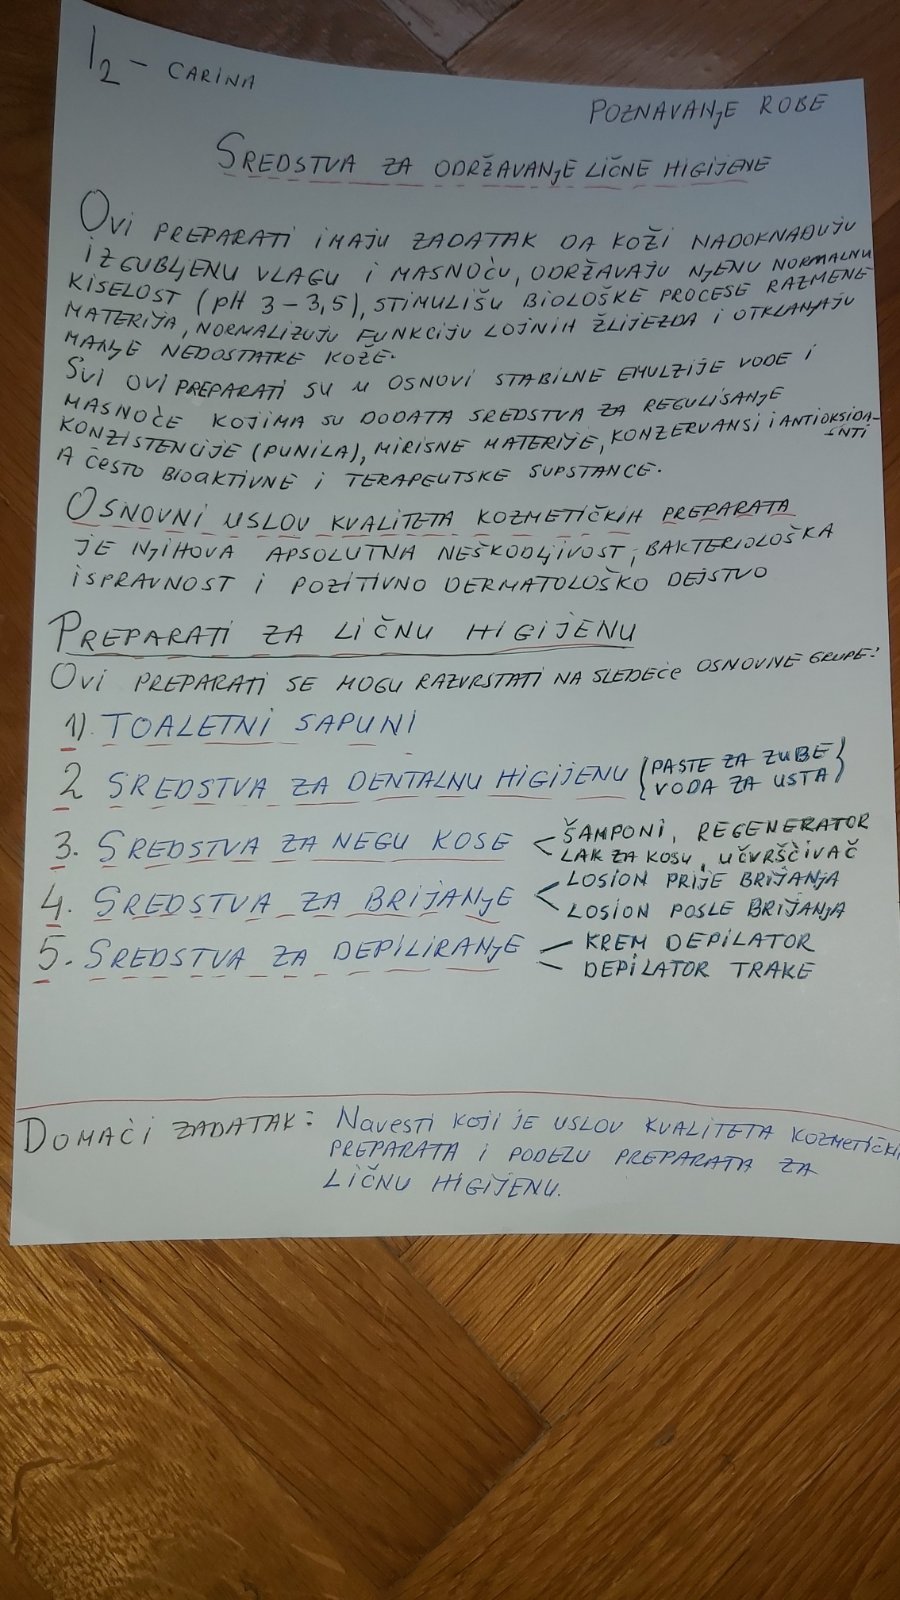 I2 - CARINA
POZNAVANJE ROBE
SREDSTVA ZA ODRŽAVANJE LIČNE HIGIJENE
OVI PREPARATI IMAJU ZADATAK DA KOŽI NADOKNAĐUJU
IZGUBLJENU VLAGU I MASNOĆU, ODRŽAVAJU NJENU NORMALNU
KISELOST (pH 3-3,5), STIMULIŠU BIOLOŠKE PROCESE RAZMENE
MATERIJA, NORMALIZUJU FUNKCIJU LOJNIH ŽLIJEZDA I OTKLANJAJU
MANJE NEDOSTATKE KOŽE.
SVI OVI PREPARATI SU U OSNOVI STABILNE EMULZIJE VODE I
MASNOĆE KOJIMA SU DODATA SREDSTVA ZA REGULISANJE
KONZISTENCIJE (PUNILA), MIRISNE MATERIJE, KONZERVANSI I ANTIOKSIDA-
-NTI
A ČESTO BIOAKTIVNE I TERAPEUTSKE SUPSTANCE.
OSNOVNI USLOV KVALITETA KOZMETIČKIH PREPARATA
JE NJIHOVA APSOLUTNA NEŠKODLJIVOST, BAKTERIOLOŠKA
ISPRAVNOST I POZITIVNO DERMATOLOŠKO DEJSTVO
PREPARATI ZA LIČNU HIGIJENU
OVI PREPARATI SE MOGU RAZVRSTATI NA SLEDEĆE OSNOVNE GRUPE:
1). TOALETNI SAPUNI
2 SREDSTVA ZA DENTALNU HIGIJENU (PASTE ZA ZUBE
VODA ZA USTA)
3. SREDSTVA ZA NEGU KOSE < ŠAMPONI, REGENERATOR
LAK ZA KOSU, UČVRŠĆIVAČ
4. SREDSTVA ZA BRIJANJE < LOSION PRIJE BRIJANJA
LOSION POSLE BRIJANJA
5. SREDSTVA ZA DEPILIRANJE - KREM DEPILATOR
- DEPILATOR TRAKE
DOMAĆI ZADATAK: Navesti KOJI JE USLOV KVALITETA KOZMETIČKI
PREPARATA I PODELU PREPARATA ZA
LIČNU HIGIJENU.